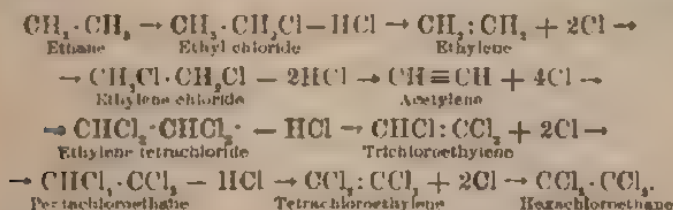 CH₃·CH₃ → CH₃·CH₂Cl—HCl → CH₂:CH₂ + 2Cl →
Ethane Ethyl chloride Ethylene
→ CH₂Cl·CH₂Cl — 2HCl → CH≡CH + 4Cl →
Ethylene chloride Acetylene
→ CHCl₂·CHCl₂· — HCl → CHCl:CCl₂ + 2Cl →
Ethylene tetrachloride Trichloroethylene
→ CHCl₂·CCl₃ — HCl → CCl₂:CCl₂ + 2Cl → CCl₃·CCl₃.
Pentachloroethane Tetrachloroethylene Hexachloroethane